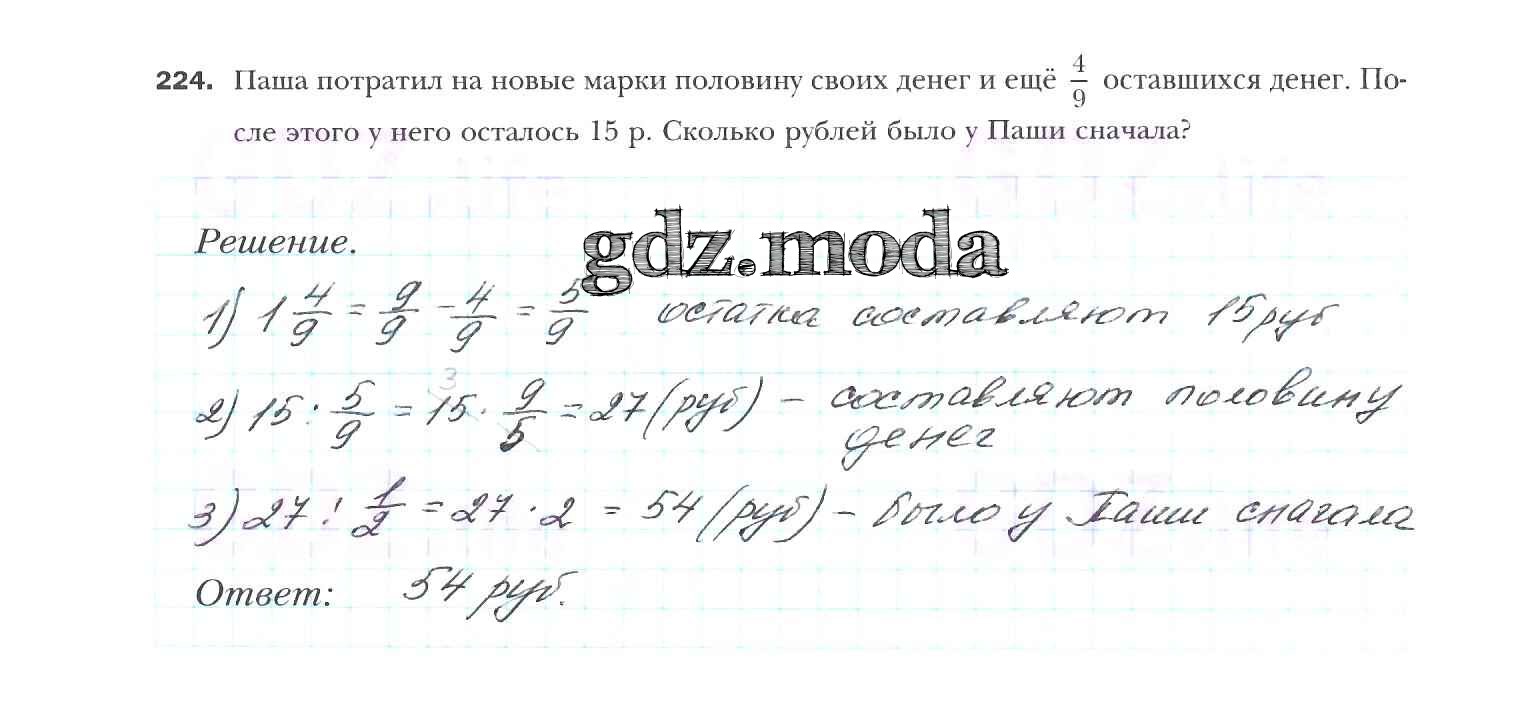 224. Паша потратил на новые марки половину своих денег и ещё 4/9 оставшихся денег. По-
сле этого у него осталось 15 р. Сколько рублей было у Паши сначала?
gdz.moda
Решение.
1) 1 4/9 = 9/9 - 4/9 = 5/9 остатка составляют 15 руб
2) 15 : 5/9 = 15 · 9/5 = 27 (руб) – составляют половину
3
денег
3) 27 : 1/2 = 27 · 2 = 54 (руб) – было у Паши сначала
Ответ: 54 руб.